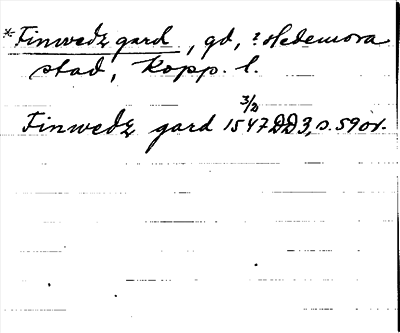 *Finwedz gard, gd, ? Hedemora
stad, Kopp. l.
Finwedz gard 1547 3/2 DD3, s. 59 or.